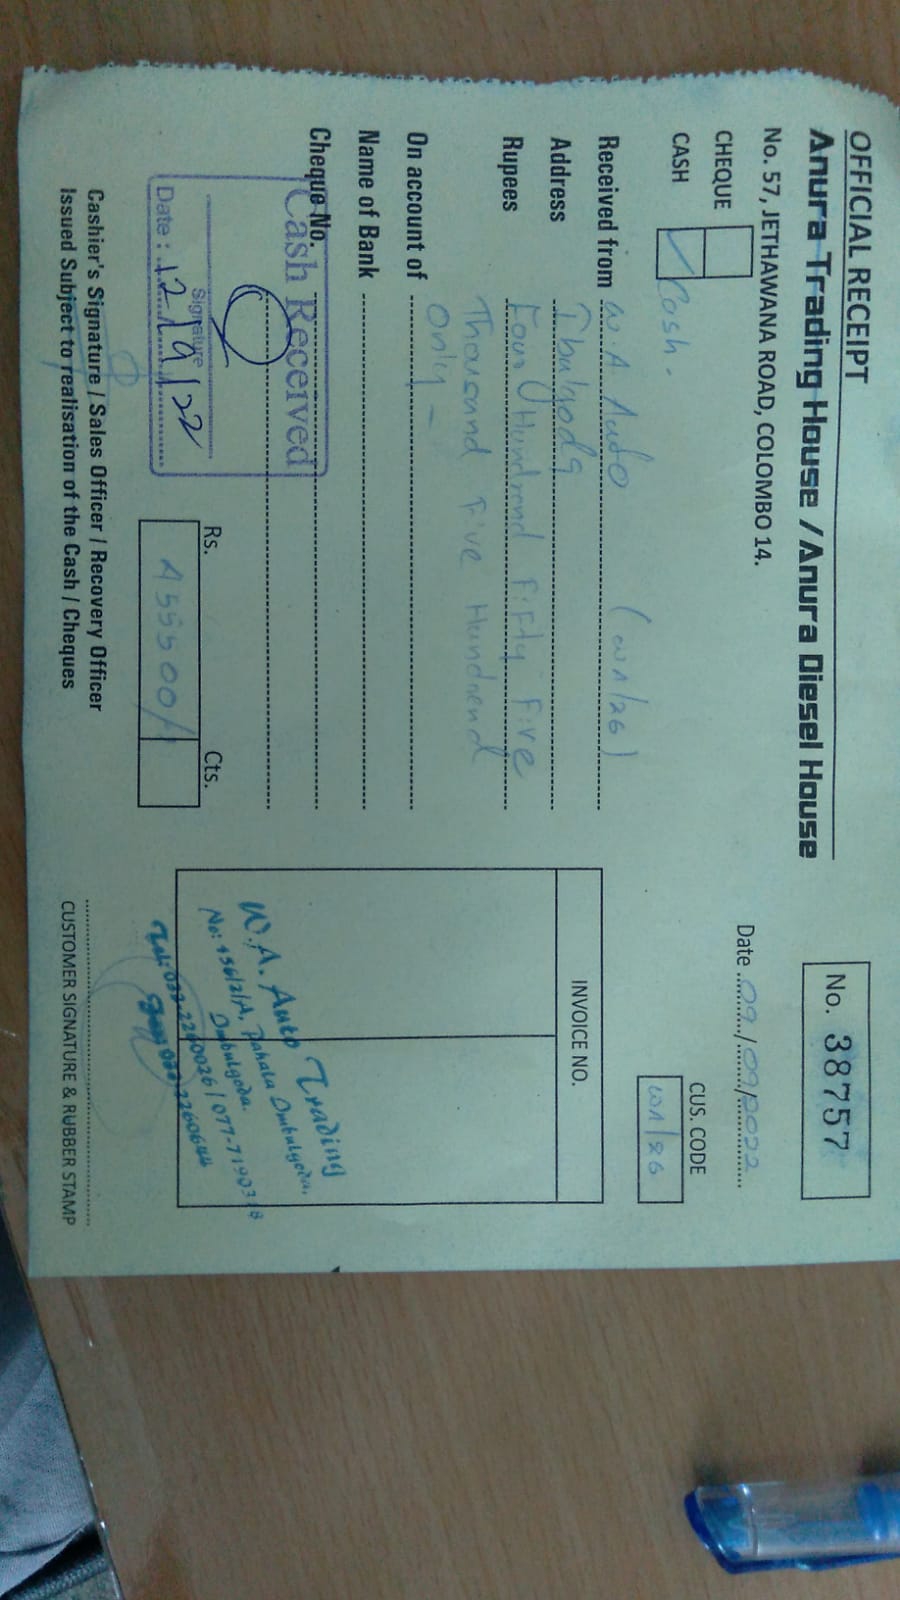 OFFICIAL RECEIPT
Anura Trading House / Anura Diesel House
No. 57, JETHAWANA ROAD, COLOMBO 14.
No. 38757
Date 09/09/2022
CHEQUE
CASH Cash.
CUS. CODE
WA/26
Received from W.A Auto (WA/26)
Address Ibulgoda
Rupees Four Hundrend Fifty Five
Thousand Five Hundrend
On account of only -
Name of Bank
Cheque No.
INVOICE NO.
Cash Received
Signature
Date : 12/9/22
Rs. Cts.
455500/-
W.A. Auto Trading
No: 456/2/A, Pahala Imbulgoda,
Imbulgoda.
Tel: 033-2260026 / 077-7190318
033-2260644
Cashier's Signature / Sales Officer / Recovery Officer
Issued Subject to realisation of the Cash / Cheques
CUSTOMER SIGNATURE & RUBBER STAMP